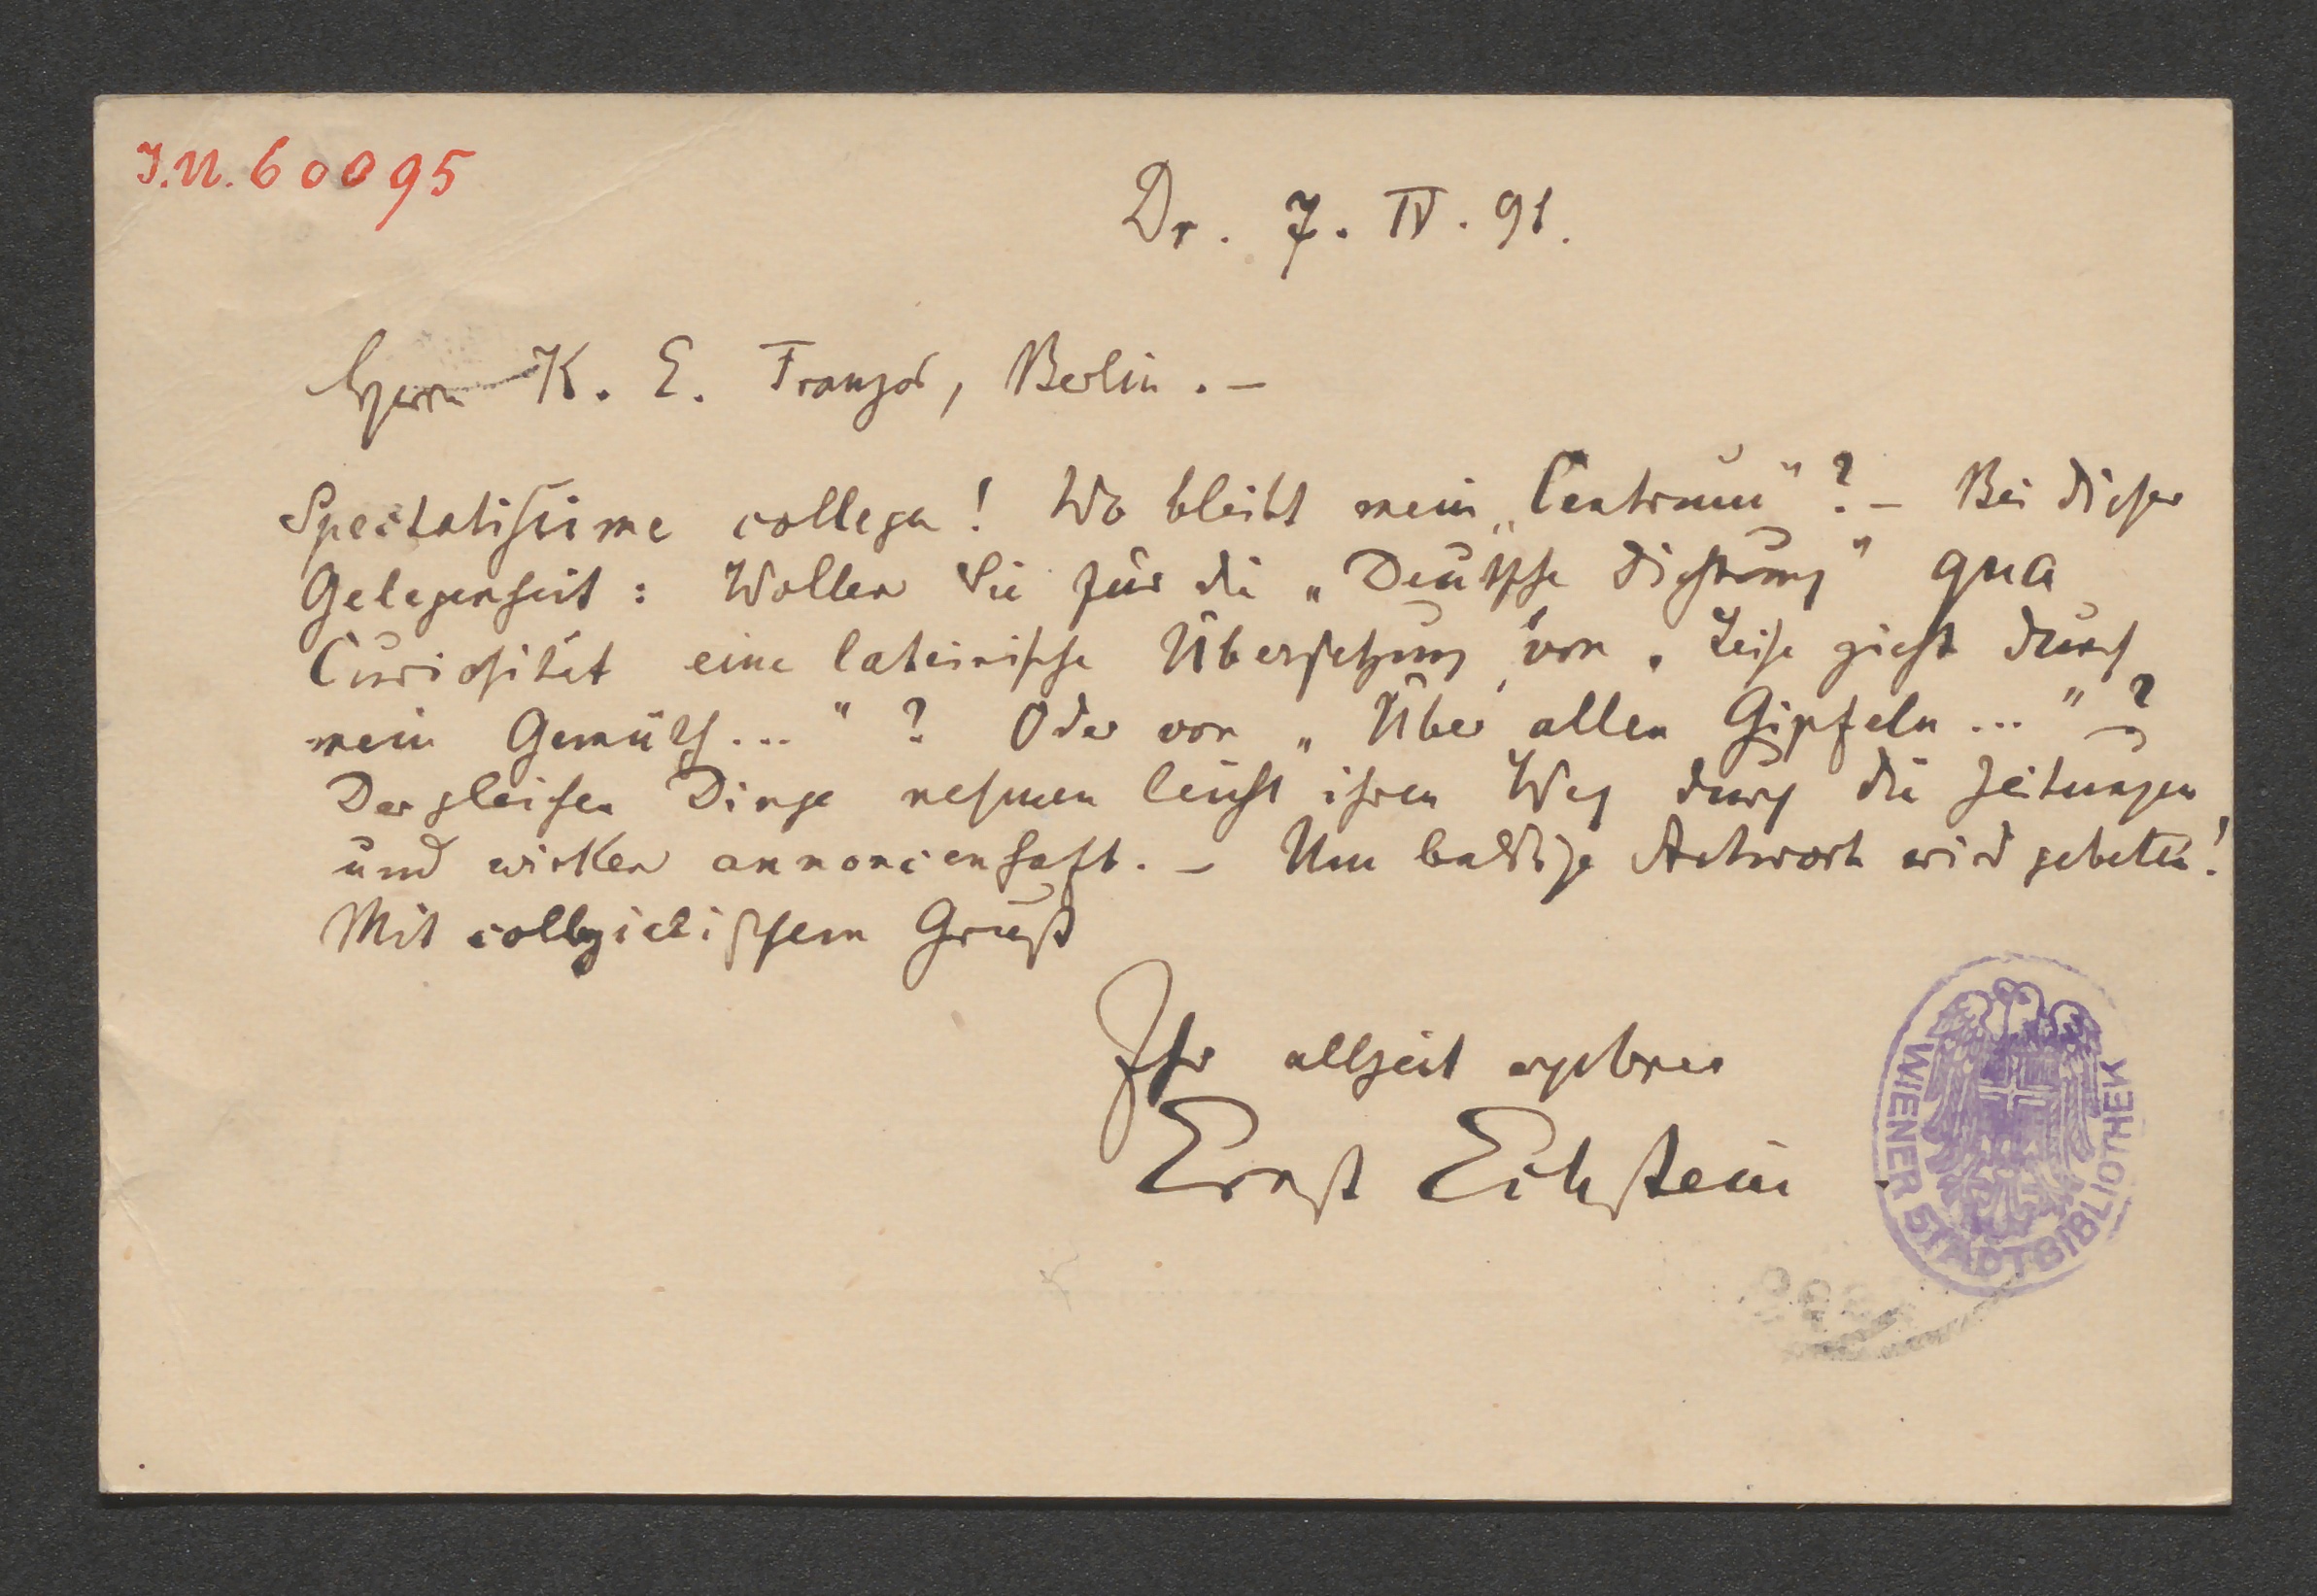 J.N. 60095
Dr. 7. IV. 91.
Herrn K. E. Franzos, Berlin. –
Spectatissime collega! Wo bleibt mein „Centrum“? – Bei dieser
Gelegenheit: Wollen Sie für die „Deutsche Dichtung“ qua
Curiosität eine lateinische Übersetzung von „Leise zieht durch
mein Gemüth...“? Oder von „Über allen Gipfeln...“?
Dergleichen Dinge nehmen leicht ihren Weg durch die Zeitungen
und wirken annoncenhaft. – Um baldige Antwort wird gebeten!
Mit collegialischem Gruß
Ihr allzeit ergebner
Ernst Eckstein
WIENER STADTBIBLIOTHEK